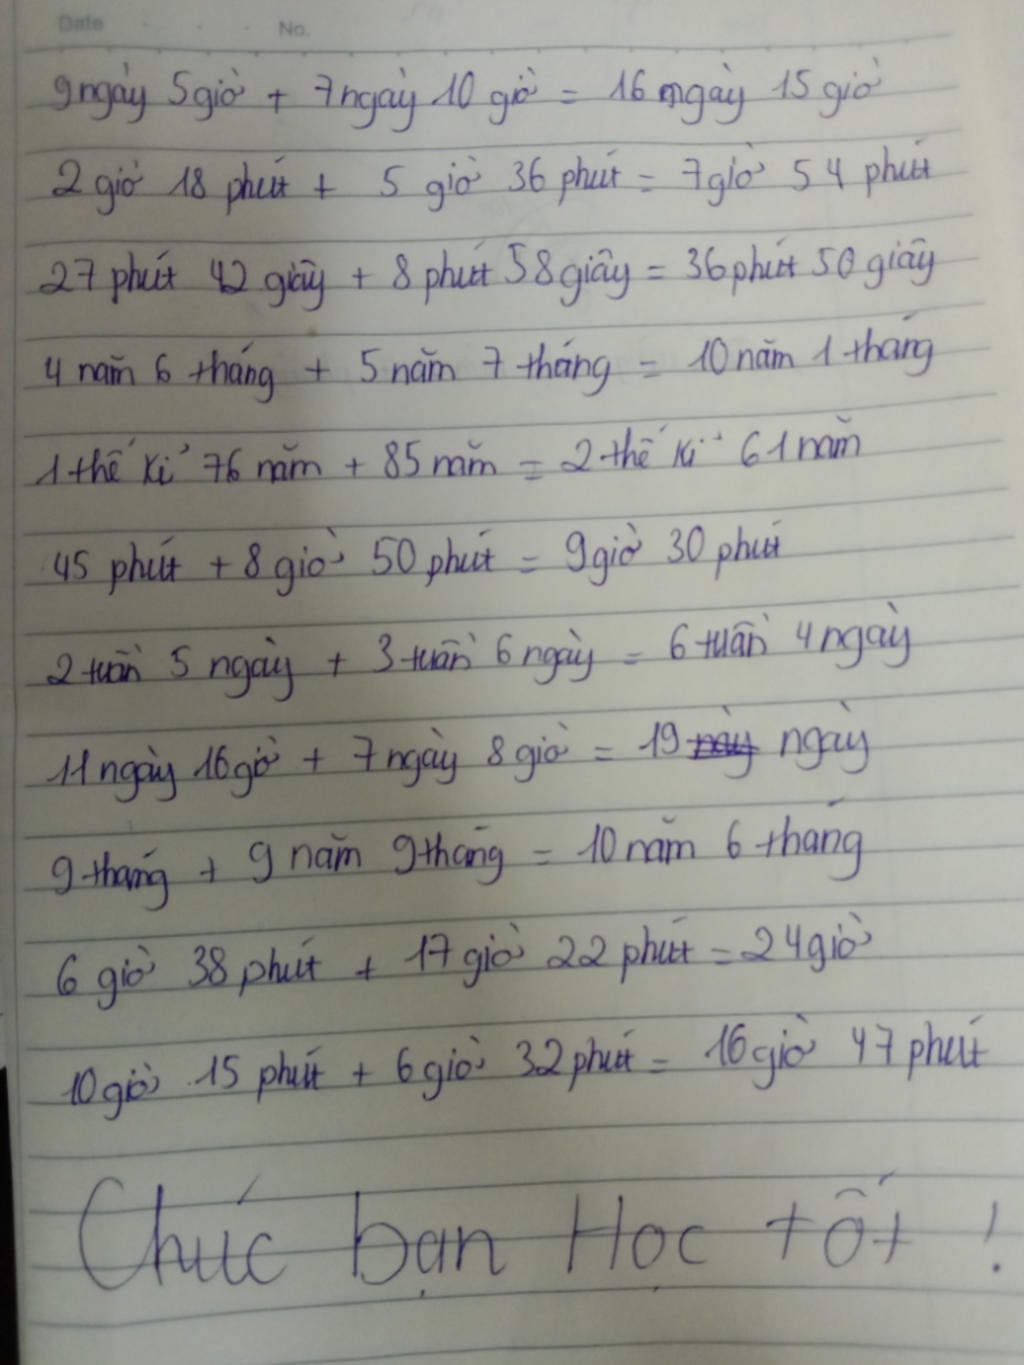 Date No.
9 ngày 5 giờ + 7 ngày 10 giờ = 16 ngày 15 giờ
2 giờ 18 phút + 5 giờ 36 phút = 7 giờ 54 phút
27 phút 42 giây + 8 phút 58 giây = 36 phút 50 giây
4 năm 6 tháng + 5 năm 7 tháng = 10 năm 1 tháng
1 thế kỉ 76 năm + 85 năm = 2 thế kỉ 61 năm
45 phút + 8 giờ 50 phút = 9 giờ 30 phút
2 tuần 5 ngày + 3 tuần 6 ngày = 6 tuần 4 ngày
11 ngày 16 giờ + 7 ngày 8 giờ = 19 ngày
9 tháng + 9 năm 9 tháng = 10 năm 6 tháng
6 giờ 38 phút + 17 giờ 22 phút = 24 giờ
10 giờ 15 phút + 6 giờ 32 phút = 16 giờ 47 phút
Chúc bạn Học tốt !